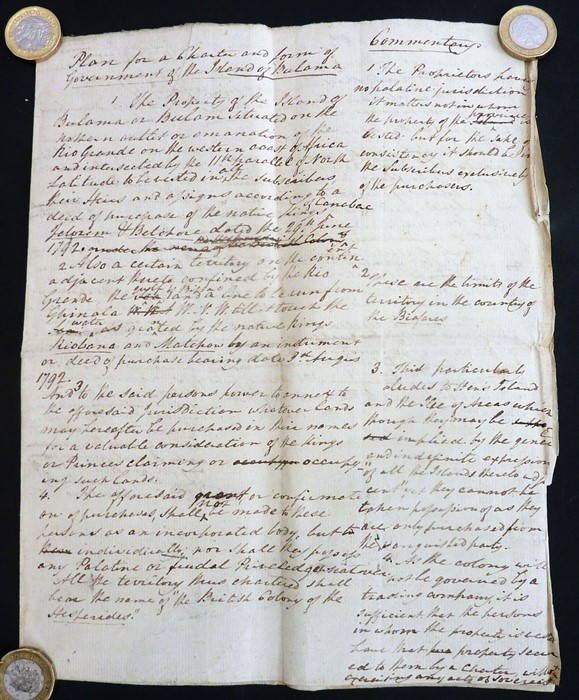 Plan for a Charter and form of
Government of the Island of Bulama
1 The Property of the Island of
Bulama or Bulam situated on the
nothern outlet or emanation of the
Rio Grande on the western coast of Africa
and intersected by the 11th parallel of North
Latitude to be vested in the subscribers
their Heirs and assigns according to a
deed of purchase of the native Kings
Jalorem & Belchore dated the 29th June
1792
2 Also a certain territory on the contin
adjacent hereto confined by the Rio
Grande the and a line to be run from
Ghinala W. N. W till it touch the
water as granted by the native Kings
Niobana and Matchore by an instrument
or deed of purchase bearing date 3rd August
1792.
3 And to the said persons power to annex to
the aforesaid Jurisdiction whatever lands
may hereafter be purchased in their names
for a valuable consideration of the Kings
or Princes claiming or occupy
ing such lands.
4. The aforesaid grant or confirmati
on of purchases, shall not be made to these
persons as an incorporated body, but to
individually, nor shall they possess
any Palatine or feudal Priveledges whatever
All the territory thus chartered shall
bear the name of "the British Colony of the
Hesperides"
Commentary
1 The Proprietors have
no palatine jurisdiction
it matters not in whom
the property of the is
vested but for the sake of
consistency it should be in
the Subscribers exclusively
of the purchasers.
2 These are the limits of the
territory in the country of
the Biafares
3. This particularly
aludes to Hens Island
and the Isle of Arcas which
though they may be
implied by the general
and indefinite expression
"of all the Islands thereto adja
cent" yet they cannot be
taken possession of as they
are only purchased from
the vanquished party.
4. As the colony will
not be governed by a
trading company, it is
sufficient that the persons
in whom the property is vested
have that property secur
ed to them by a Charter, without
exercising any acts of sovereig